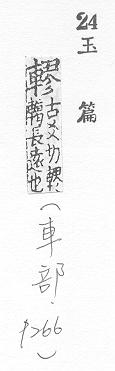 24 玉篇
轇古爻切轇轕長遠也(車部. P266)